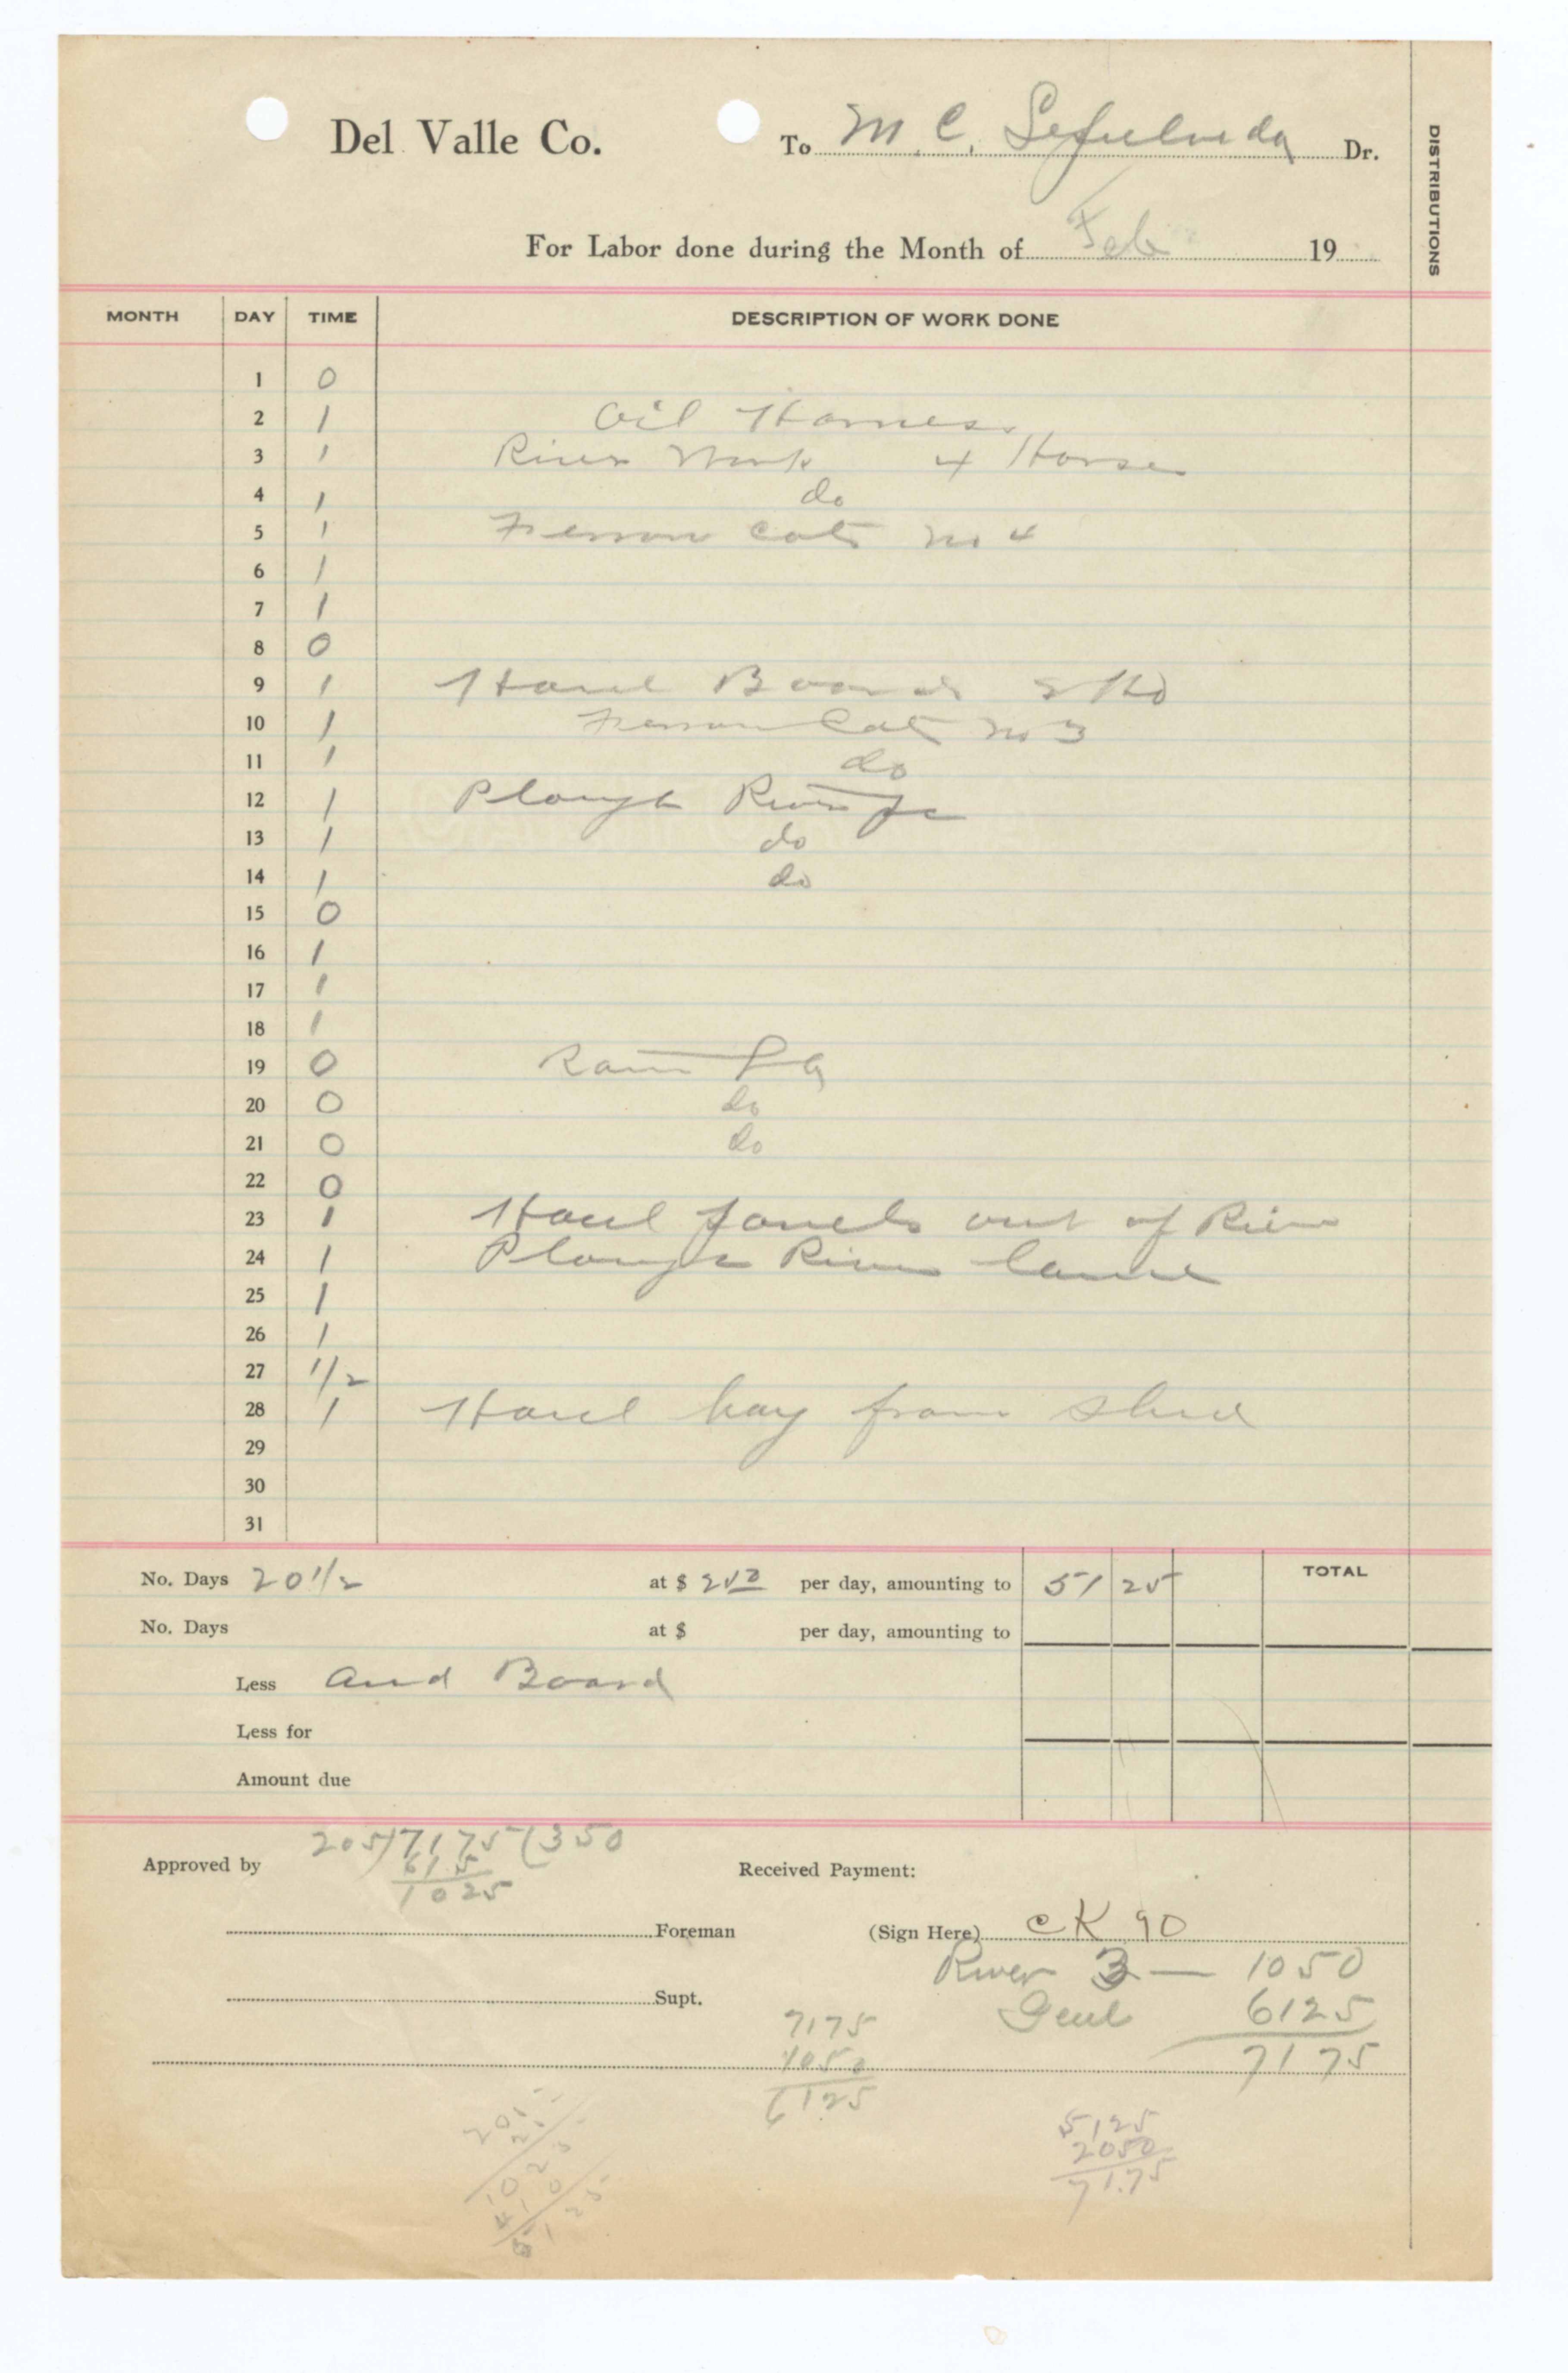 Del Valle Co. To M. C. Sepulveda Dr.
DISTRIBUTIONS
For Labor done during the Month of Feb 19
MONTH DAY TIME DESCRIPTION OF WORK DONE
1 0
2 1 Oil Harness
3 1 River Work 4 Horse
4 1 do
5 1 Fresno Cat No 4
6 1
7 1
8 0
9 1 Haul Boards
10 1 Fresno Cat No 3
11 1 do
12 1 Plough River
13 1 do
14 1 do
15 0
16 1
17 1
18 1
19 0 Rain
20 0 do
21 0 do
22 0
23 1 Haul panels out of River
24 1 Plough River land
25 1
26 1
27 1/2
28 1 Haul hay from shed
29
30
31
No. Days 20 1/2 at $ 2 50 per day, amounting to 51 25 TOTAL
No. Days at $ per day, amounting to
Less and Board
Less for
Amount due
205)7175(350
615
1025
Approved by Received Payment:
Foreman (Sign Here) CK 90
River 3 — 1050
Supt. Genl 6125
7175
7175
1050
6125
205
25
1025
410
5125
5125
2050
71.75